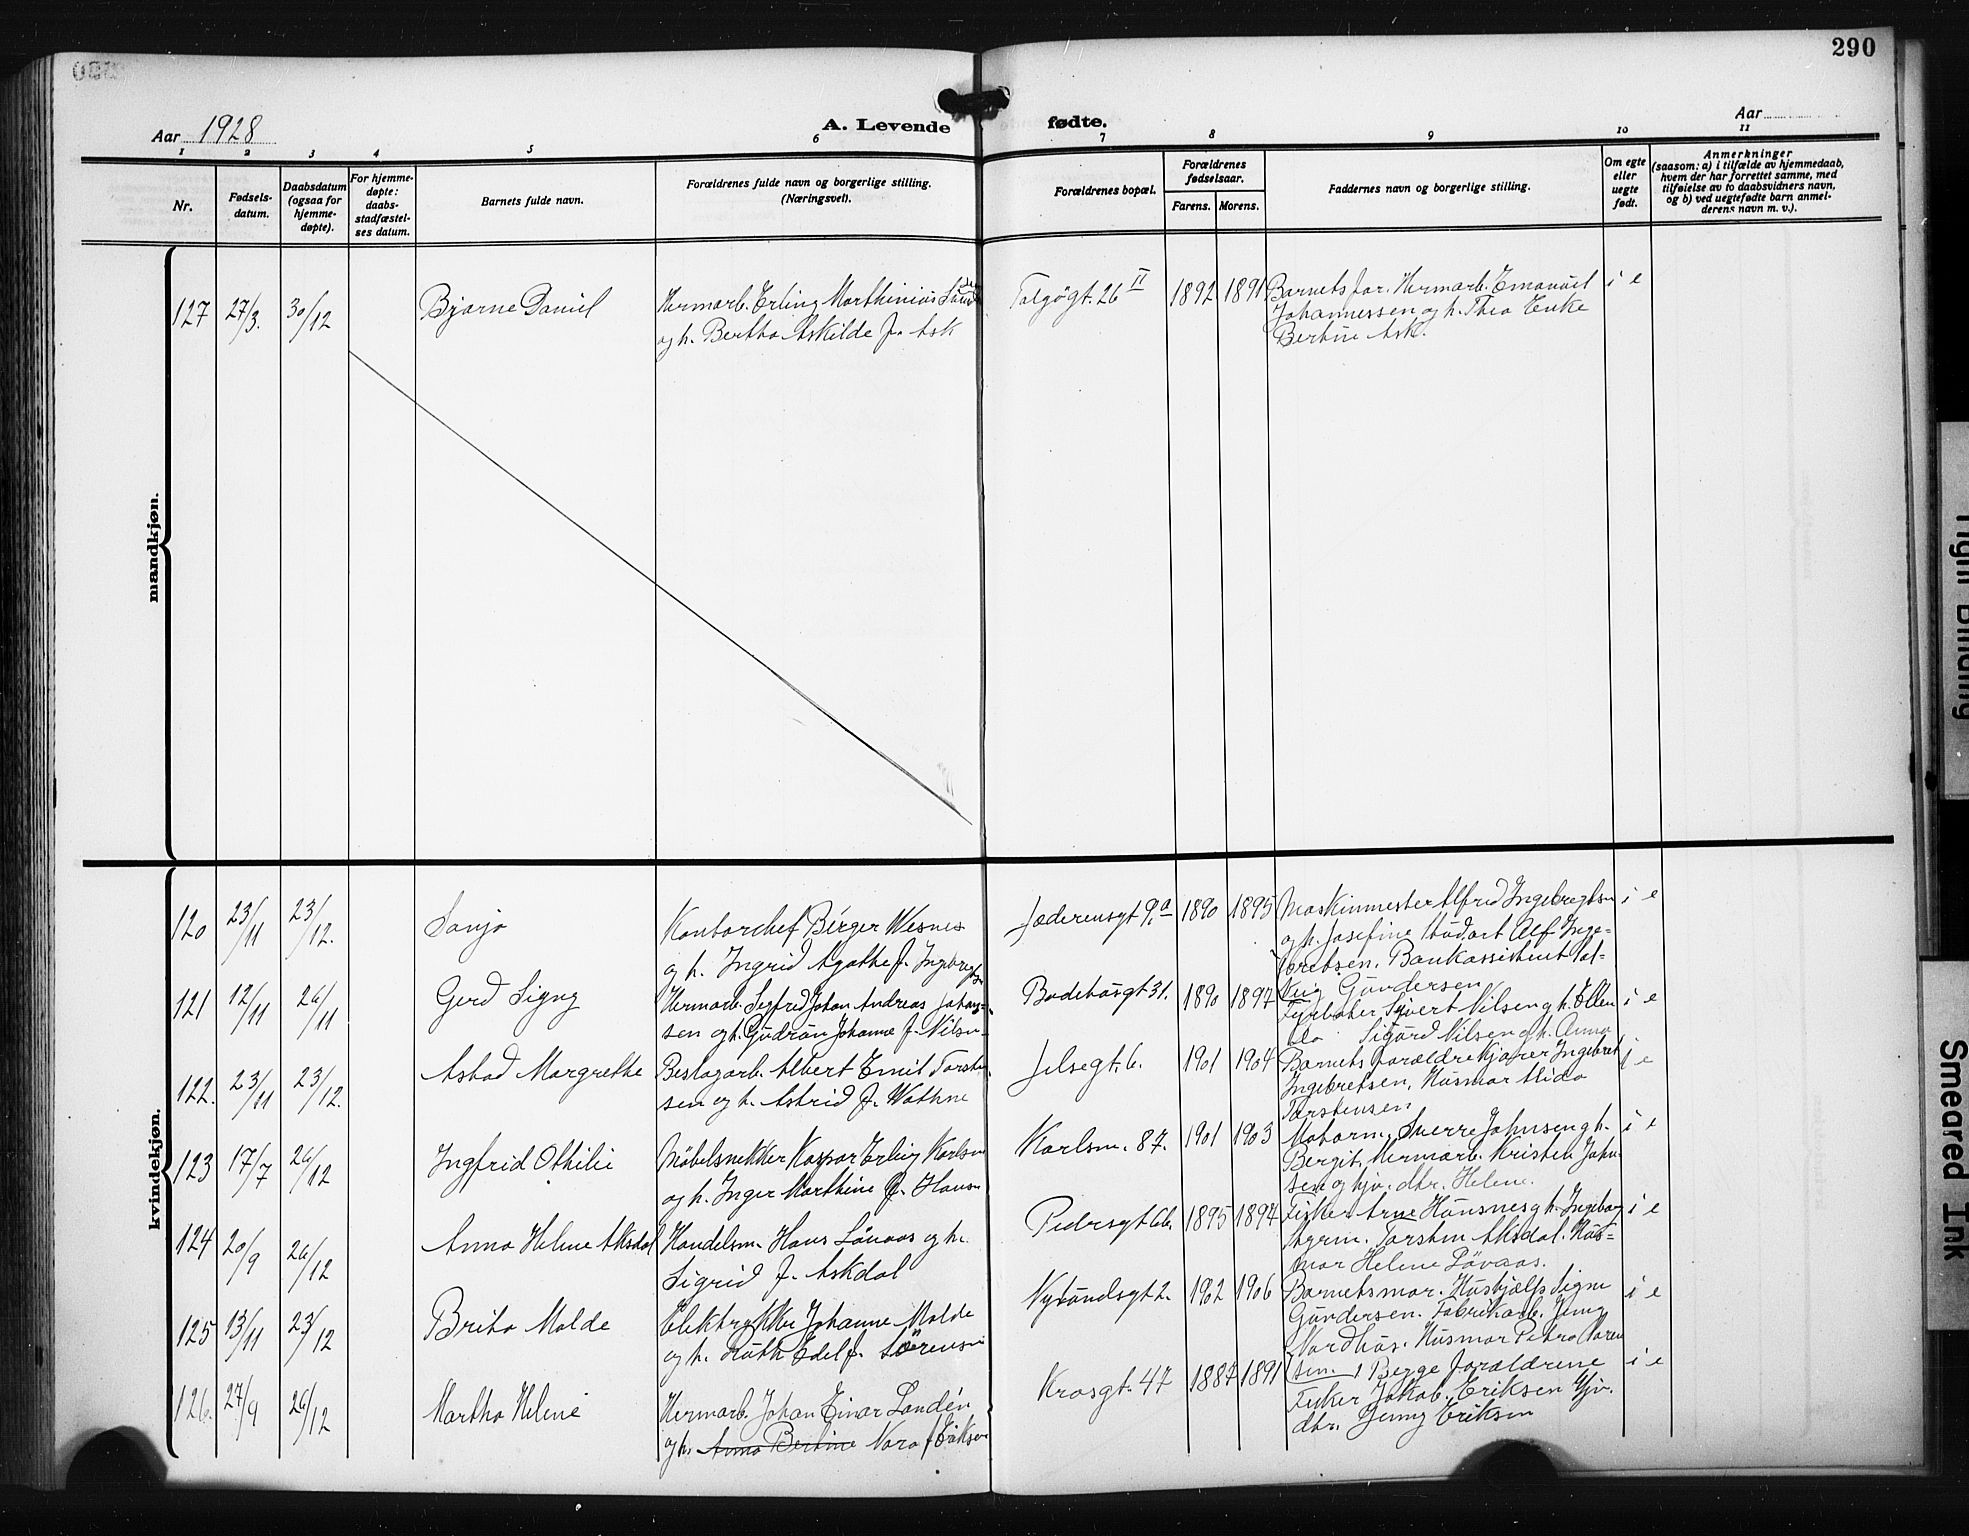 290
Aar 1928
A. Levende
fødte.
Aar
1 2 3 4 5 6 7 8 9 10 11
Nr.
Fødsels-
datum.
Daabsdatum
(ogsaa for
hjemme-
døpte).
For hjemme-
døpte:
daabs-
stadfæstel-
ses datum.
Barnets fulde navn.
Forældrenes fulde navn og borgerlige stilling.
(Næringsvei).
Forældrenes bopæl.
Forældrenes
fødselsaar.
Farens. Morens.
Faddernes navn og borgerlige stilling.
Om egte
eller
uegte
født.
Anmerkninger
(saasom: a) i tilfælde av hjemmedaab,
hvem der har forrettet samme, med
tilføielse av to daabsvidners navn,
og b) ved uegtefødte barn anmel-
derens navn m. v.).
mandkjøn.
127 27/3. 30/12
Bjarne Daniel
Hermarb. Erling Marthinius
og h. Bertha Askilde f. Ask
Talgøgt. 26 II
1892 1891
Barnets far. Hermarb. Emanuel
Johannessen og h. Thea Enke
Bertine Ask.
i e
kvindekjøn.
120 23/11 23/12.
Sonja
Kontorchef Berger Wesnes
og h. Ingrid Agathe f. Ingebregtsen
Jæderensgt 9.a
1890 1895
Maskinmester Alfred Ingebregtsen
og h. Josefine Alf Inge-
bretsen. Bankassistent
Gundersen
i e
121 12/11 26/11
Gerd Signy
Hermarb. Segfred Johan Andreas Johans-
sen og h. Gudrun Johanne f. Nilsen
Badehusgt 31.
1890 1897
Fyrbøter Sivert Nilsen g h. Ellen
Sigurd Nilsen g h. Anna
i e
122. 23/11 23/12.
Astad Margrethe
Beslagarb. Albert Emil Torsten-
sen og h. Astrid f. Wathne
Jelsegt. 6.
1901 1904
Barnets forældre Kjører Ingebret
Ingebretsen, Husmor Alida
Torstensen
i e
123 17/7 26/12
Ingfrid Othilie
Møbelsnekker Kaspar Erling Karlsen
og h. Inger Marthine f. Hansen
Karlsm. 87.
1901 1903
Motorm. Sverre Johnsen g h.
Bergit. Hermarb. Kristen John-
sen og hjv. dtr. Helene.
i e
124 20/9 26/12
Anna Helene Aksdal
Handelsm. Hans Løvaas og h.
Sigrid f. Askdal
Pedersgt 66.
1895 1897
Fisker Arne Hausnes g h. Ingeborg
Agrm. Torsten Aksdal. Hus-
mor Helene Løvaas.
i e
125 13/11 23/12
Brita Molde
Elektrykker Johanne Molde
og h. Ruth Edel f. Sørensen
Nylundsgt 2.
1902 1906
Barnets mor. Hushjælp Signe
Gundersen. Fabrikarb. Jenny
Nordhus. Husmor Petra Soren
sen.
i e
126. 27/9 26/12
Martha Helene
Hermarb. Johan Einar Landén
og h. Anna Bertine Nora f. Eriksen
Krosgt. 47
1887 1891
Begge forældrene
Fisker Jakob Eriksen Hjv.
dtr. Jenny Eriksen
i e
Tight Binding
Smeared Ink